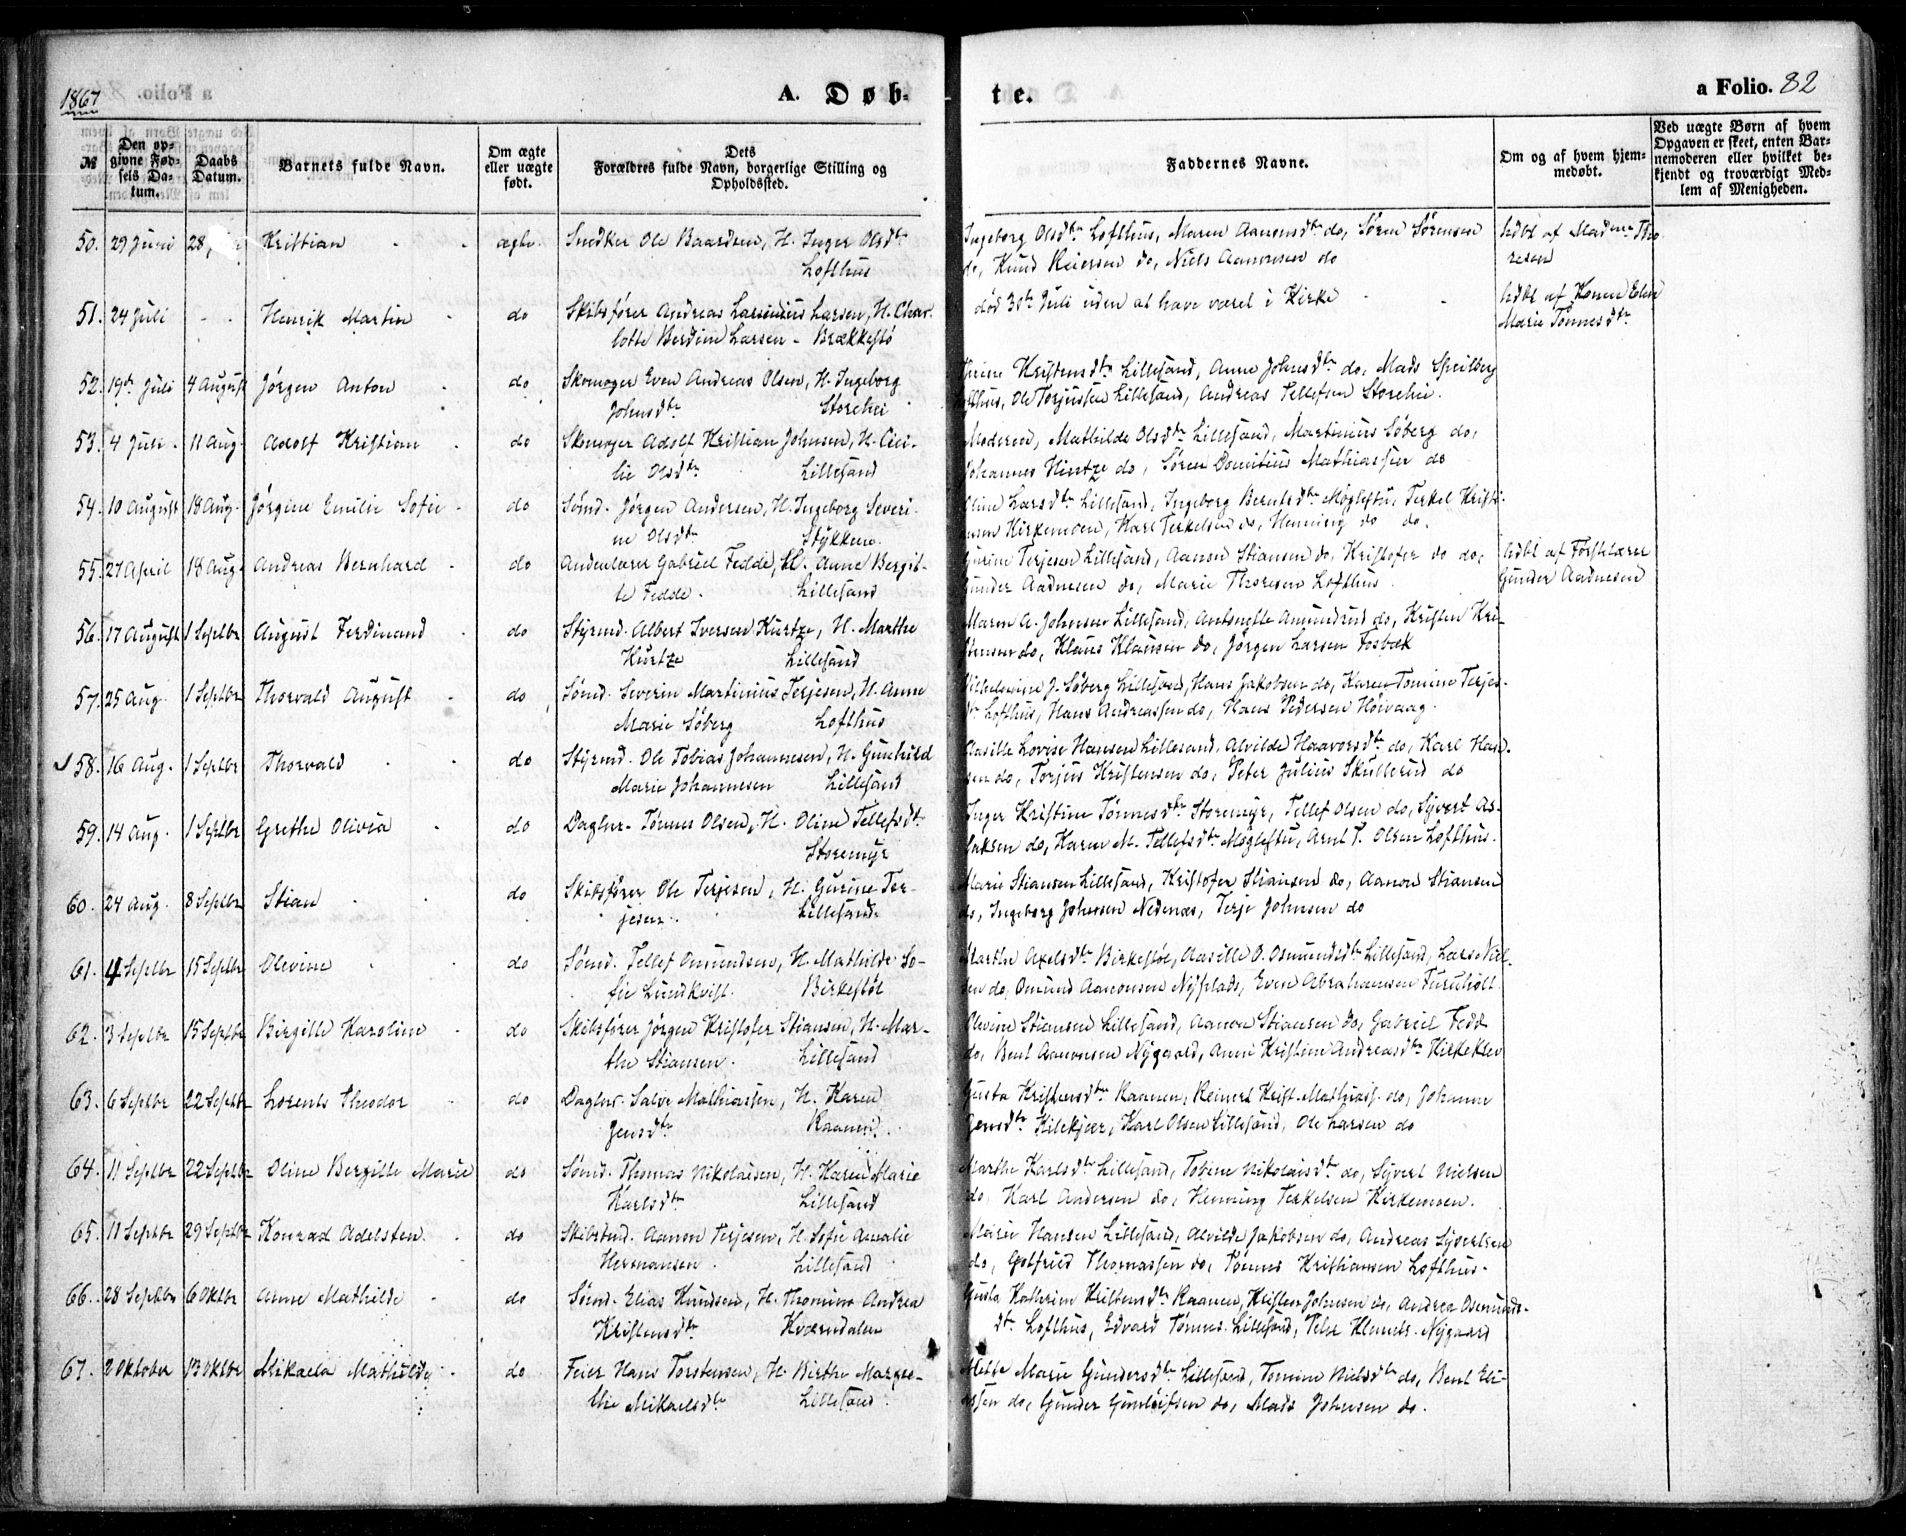 1867
A. Døb-
te.
a Folio. 82
№
Den opgivne Fødsels Datum.
Daabs Datum.
Barnets fulde Navn.
Om ægte eller uægte født.
Dets Forældres fulde Navn, borgerlige Stilling og Opholdssted.
Faddernes Navne.
Om og af hvem hjemmedøbt.
Ved uægte Børn af hvem Opgaven er skeet, enten Barnemoderen eller hvilket bekjendt og troværdigt Medlem af Menigheden.
50. 29 Juni 28 Kristian ægte. Snedker Ole Baardsen, H. Inger Olsdtr
Lofthus
Ingeborg Olsdtr Lofthus, Maren Aanonsdtr do, Søren Sørensen
do, Knud Reiersen do, Niels Aanonsen do
hdbt af Madme Tho
resen
51. 24 Juli Henrik Martin do Skibsfører Andreas Larsen, H. Char
lotte Berdine Larsen - Brækkestø
død 30te Juli uden at have været i Kirke
hdbt af Konen Elen
Marie Tønnesdtr
52. 19de Juli 4 August Jørgen Anton do Skomager Even Andreas Olsen, H. Ingeborg
Johnsdtr Storehei
Kristensdtr Lillesand, Anne Johnsdtr do, Mads Speilberg
Lofthus, Ole Torjussen Lillesand, Andreas Tellefsen Storehei.
53. 4 Juli. 11 Aug. Adolf Kristian do Skomager Adolf Kristian Johnsen, H. Ceci-
lie Olsdtr Lillesand
Moderen, Mathilde Olsdtr Lillesand, Martinius Søberg do,
Johannes Hintze do, Søren Domitius Mathiassen do
54. 10 August 18 Aug. Jørgine Emilie Sofie do Sømd. Jørgen Andersen, H. Ingeborg Severi-
ne Olsdtr Stykkene.
Oline Larsdtr Lillesand, Ingeborg Berntsdtr Møglestu, Terkel Kristi-
ansen Kirkemoen, Karl Terkelsen do, Henning do do.
55. 27 April 18 Aug. Andreas Bernhard do Andenlærer Gabriel Fedde, H. Anne Bergit-
te Fedde. Lillesand
Gurine Terjesen Lillesand, Aanon Stiansen do, Kristofer do do,
Gunder Aadnesen do, Marie Thoresen Lofthus.
hdbt af Førstelærer
Gunder Aadnesen
56. 17 August 1 Septbr August Ferdinand do Styrmd. Albert Iversen Kurtze, H. Marthe
Kurtze Lillesand
Maren A. Johnsen Lillesand, Antonette Amundrud do, Kristen Kri-
stensen do, Klaus Klausen do, Jørgen Larsen Fosbæk
57. 25 Aug. 1 Septbr Thorvald August do Sømd. Severin Martinius Terjesen, H. Anne
Marie Søberg Lofthus
Vilhelmine J. Søberg Lillesand, Hans Jakobsen do, Karen Tomine Terjes-
dtr Lofthus, Hans Andreassen do, Hans Pedersen Høivaag.
58. 16 Aug. 1 Septbr Thorvald do Styrmd. Ole Tobias Johannesen, H. Gunhild
Marie Johannesen Lillesand
Aasille Lovise Hansen Lillesand, Alvilde Haavorsdtr do, Karl Han-
sen do, Torjus Kristensen do, Peter Julius Skullerud do
59. 14 Aug. 1 Septbr Grethe Olivia do Dagbr. Tønnes Olsen, H. Oline Tellefsdtr
Storemyr
Inger Kristine Tønnesdtr Storemyr, Tellef Olsen do, Syvert As-
laksen do, Karen M. Tellefsdtr Møglestu, Arnt T. Olsen Lofthus.
60. 24 Aug. 8 Septbr Stian do Skibsfører Ole Terjesen, H. Gurine Ter-
jesen. Lillesand.
Marie Stiansen Lillesand, Kristofer Stiansen do, Aanon Stiansen
do, Ingeborg Johnsen Nedenæs, Terje Johnsen do
61. 4 Septbr 15 Septbr Olivine do Sømd. Tellef Omundsen, H. Mathilde So-
fie Lundkvist. Birkestøl
Marthe Axelsdtr Birkestøl, Aasille O. Osmundsdtr Lillesand, Lars Niel-
sen do, Omund Aanonsen Nyplads, Even Abrahamsen Furuholt
62. 3 Septbr 15 Septbr Birgitte Karoline do Skibsfører Jørgen Kristofer Stiansen, H. Mar-
the Stiansen. Lillesand
Olevine Stiansen Lillesand, Aanon Stiansen do, Gabriel Fedde
do, Bent Aanonsen Nygaard, Anne Kristine Andreasdtr Kirkeklev
63. 6 Septbr 22 Septbr Lorents Theodor do Dagbr. Salve Mathiassen, H. Karen
Jensdtr Kaanen.
Gusta Kristensdtr Kaanen, Reinert Krist. Mathiass. do, Johanne
Jensdtr Kilekjær, Karl Olsen Lillesand, Ole Larsen do
64. 11 Septbr 22 Septbr Oline Bergitte Marie do Sømd. Thomas Nikolaisen, H. Karen Marie
Karlsdtr Lillesand
Marthe Karlsdtr Lillesand, Tobine Nikolaisdtr do, Syvert Nielsen
do, Karl Andersen do, Henning Terkelsen Kirkemoen.
65. 11 Septbr 29 Septbr Konrad Adelsten do Skibstmd. Aanon Terjesen, H. Sofie Amalie
Hermansen. Lillesand
Hansen Lillesand, Alvilde Jakobsen do, Andreas Syvertsen
do, Gotfried Thomassen do, Tønnes Kristiansen Lofthus.
66. 28 Septbr 6 Oktbr Anne Mathilde do Sømd. Elias Knudsen, H. Thomine Andrea
Kristensdtr Kværndalen
Gusta Kathrine Kristensdtr Kaanen, Kristen Johnsen do, Andrea Osmunds-
dtr Lofthus, Edvard Tønnes. Lillesand, Peter Nygaard
67. 2 Oktober 13 Oktbr Mikaela Mathilde do Feier Hans Torstensen, H. Birthe Margre-
the Mikaelsdtr Lillesand
Mette Marie Gundersdtr Lillesand, Tomine Nielsdtr do, Bent Eli-
assen do, Gunder Gunleifsen do, Mads Johnsen do.